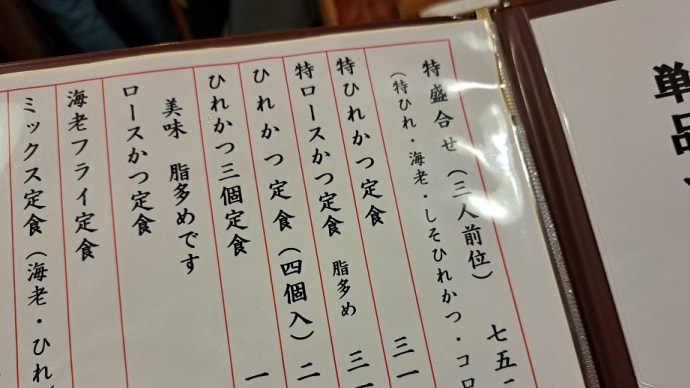 単品
特盛合せ（三人前位） 七五
（特ひれ・海老・しそひれかつ・コロ
特ひれかつ定食 三一
特ロースかつ定食 脂多め 三一
ひれかつ定食（四個入） 二
ひれかつ三個定食 一
美味 脂多めです
ロースかつ定食
海老フライ定食
ミックス定食（海老・ひれ